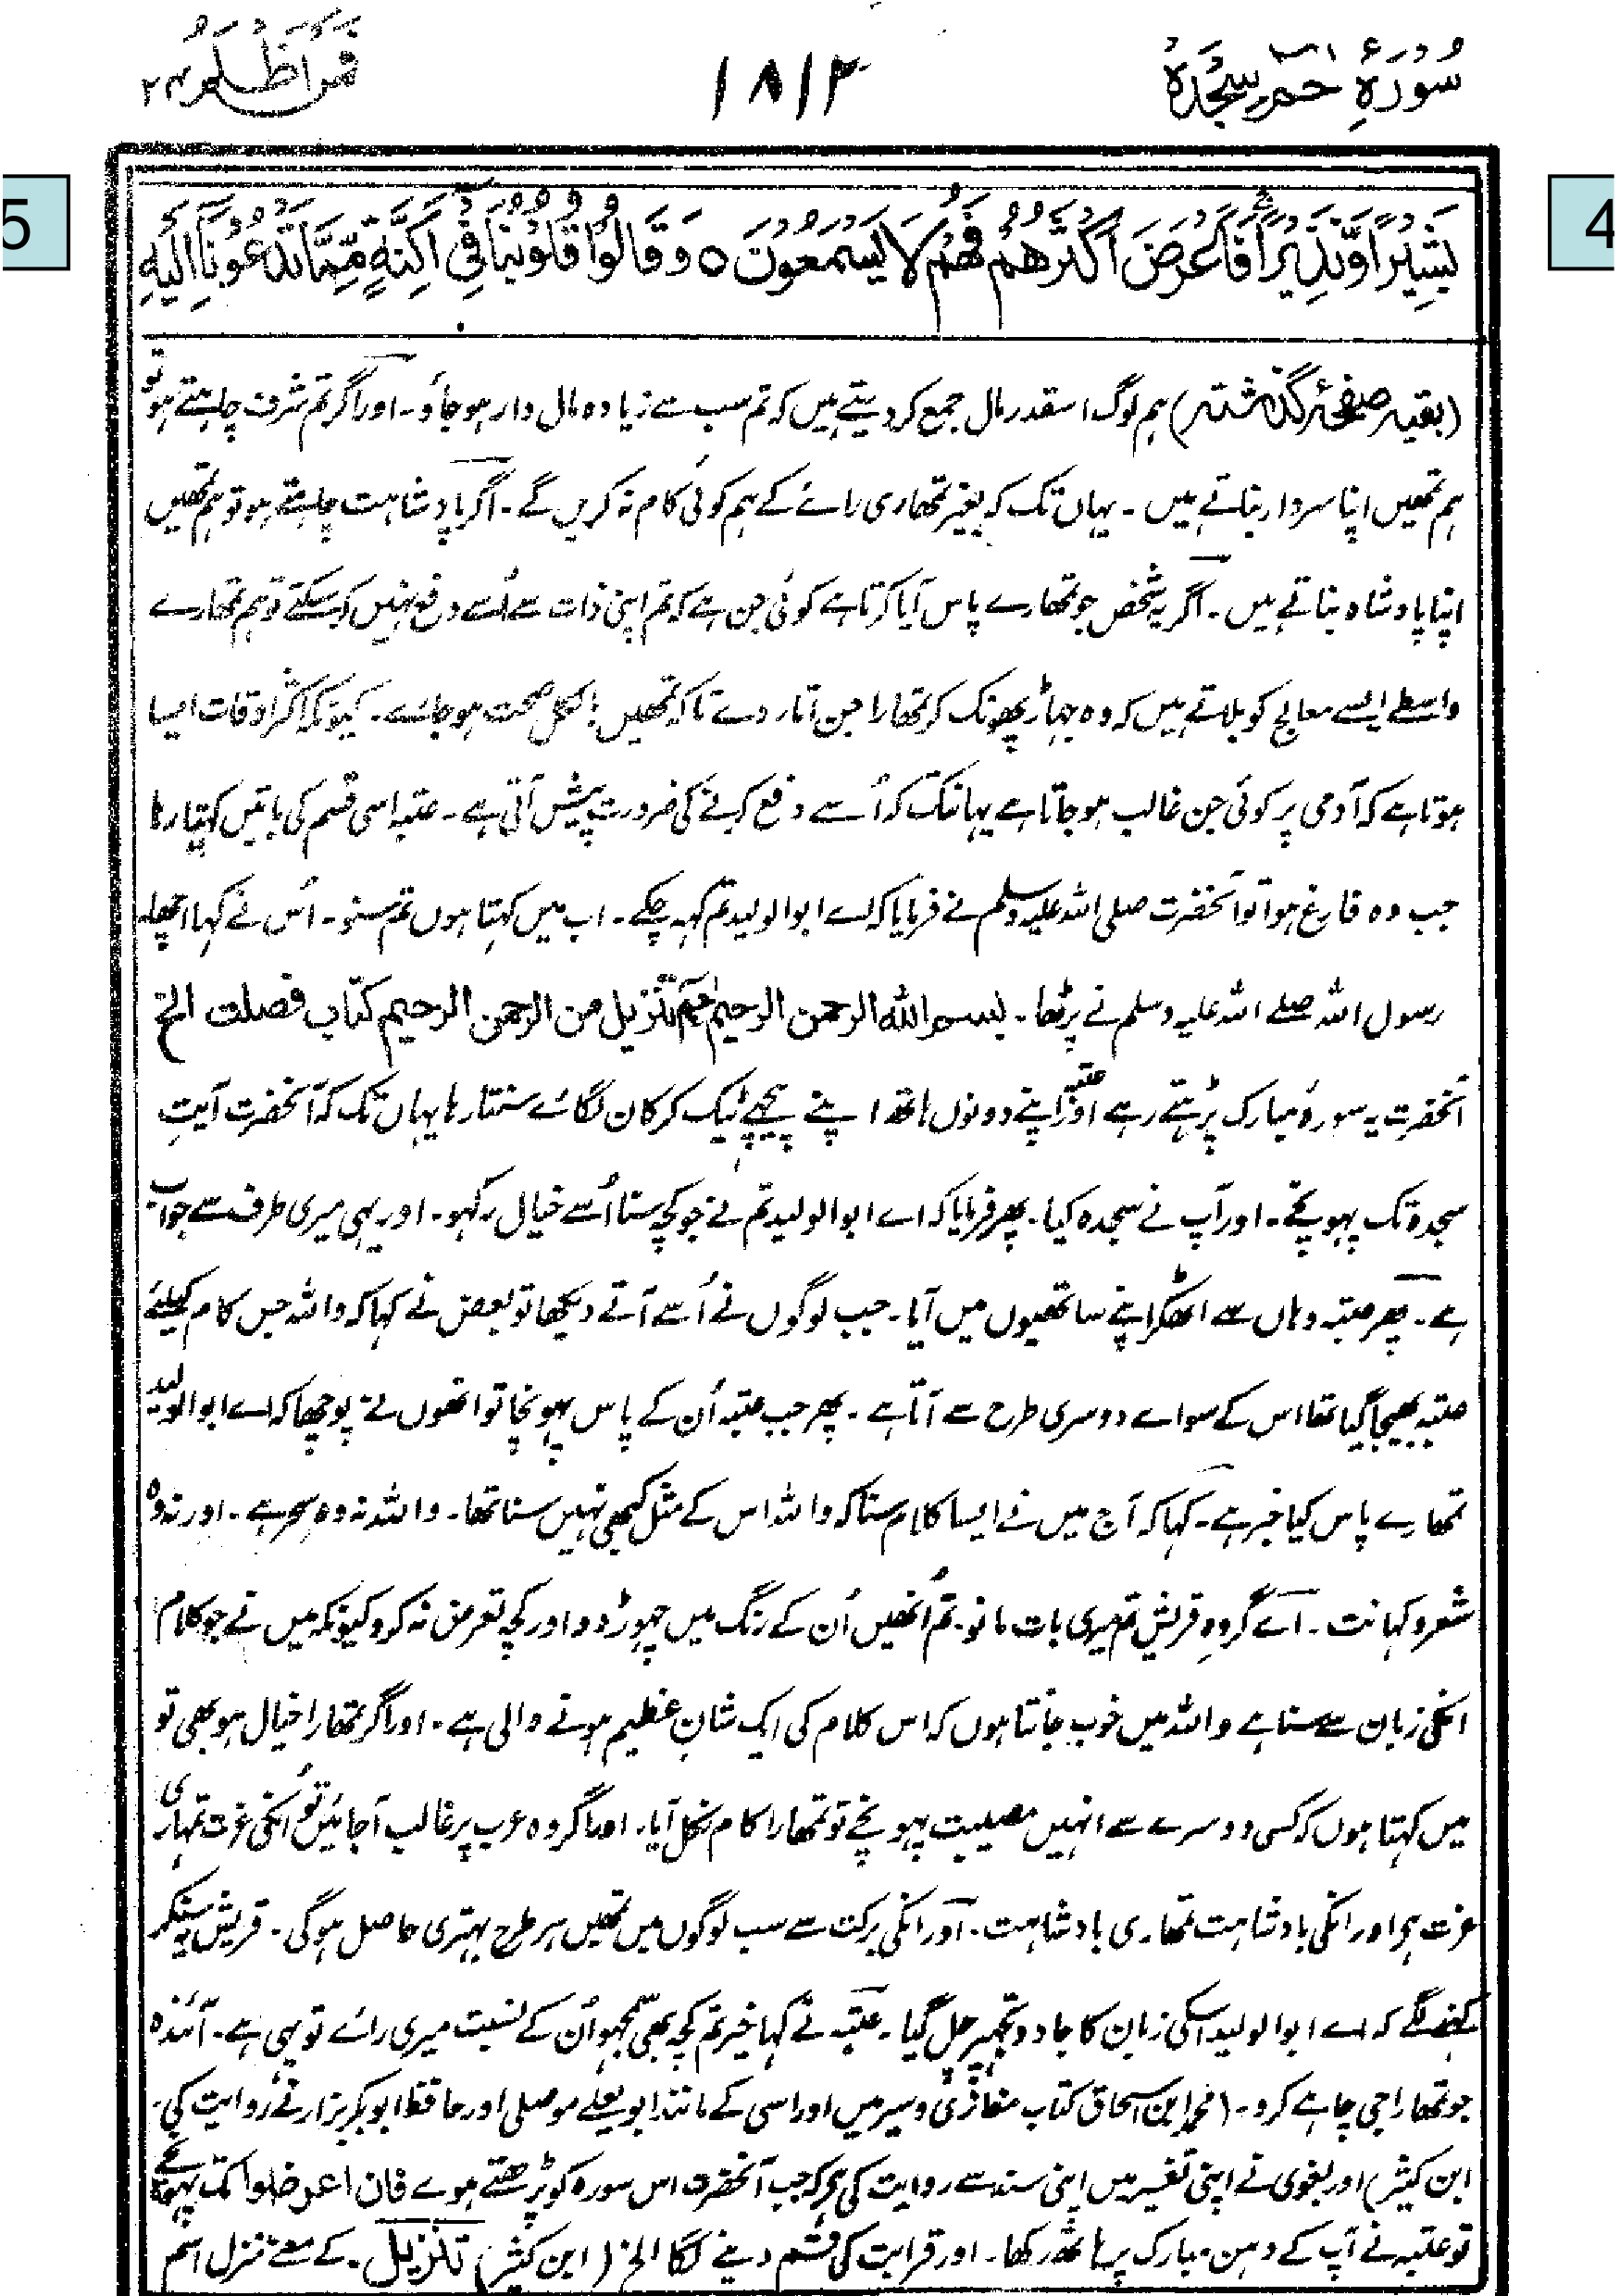 سُورَةِ حٰمٓ سَجْدَہ ۴۱
۱۸۱۲
فَمَنْ اَظْلَمُ ۲۴
5
4
بَشِیْرًا وَّنَذِیْرًا فَاَعْرَضَ اَکْثَرُهُمْ فَهُمْ لَا یَسْمَعُوْنَ ○ وَقَالُوْا قُلُوْبُنَا فِیْ اَکِنَّةٍ مِّمَّا تَدْعُوْنَآ اِلَیْهِ
(بقیہ صفحۂ گذشتہ) ہم لوگ اسقدر مال جمع کر دیتے ہیں کہ تم سب سے زیادہ مال دار ہو جاؤ۔ اور اگر تم شرف چاہتے ہو تو
ہم تمھیں اپنا سردار بناتے ہیں۔ یہاں تک کہ بغیر تمھاری رائے کے ہم کوئی کام نہ کریں گے۔ اگر بادشاہت چاہتے ہو تو ہم تمھیں
اپنا پادشاہ بناتے ہیں۔ اگر یہ شخص جو تمھارے پاس آیا کرتا ہے کوئی جن ہے کہ تم اپنی ذات سے اُسے دفع نہیں کر سکتے تو ہم تمھارے
واسطے ایسے معالج کو بلاتے ہیں کہ وہ جہاڑ پھونک کر تمھارا جن اتار دے تاکہ تمھیں بالکل صحت ہو جائے۔ کیونکہ اکثر اوقات ایسا
ہوتا ہے کہ آدمی پر کوئی جن غالب ہو جاتا ہے یہانتک کہ اُسے دفع کرنے کی ضرورت پیش آتی ہے۔ عتبہ اسی قسم کی باتیں کہتا رہا
جب وہ فارغ ہوا تو آنحضرت صلی اللہ علیہ وسلم نے فرمایا کہ اے ابوالولید تم کہہ چکے۔ اب میں کہتا ہوں تم سنو۔ اُس نے کہا اچھا۔
رسول اللہ صلے اللہ علیہ وسلم نے پڑھا۔ بسم اللہ الرحمن الرحیم حٰمٓ تنزیل من الرحمن الرحیم کتاب فصلت الخ
آنحضرت یہ سورۂ مبارک پڑہتے رہے اور عتبہ اپنے دونوں ہاتھ اپنے پیچھے ٹیک کر کان لگائے سنتا رہا یہاں تک کہ آنحضرت آیتِ
سجدہ تک پہونچے۔ اور آپ نے سجدہ کیا۔ پھر فرمایا کہ اے ابوالولید تم نے جو کچھ سنا اُسے خیال رکھو۔ اور یہی میری طرف سے جواب
ہے۔ پھر عتبہ وہاں سے اٹھکر اپنے ساتھیوں میں آیا۔ جب لوگوں نے اُسے آتے دیکھا تو بعض نے کہا کہ واللہ جس کام کیلئے
عتبہ بھیجا گیا تھا اس کے سوائے دوسری طرح سے آتا ہے۔ پھر جب عتبہ اُن کے پاس پہونچا تو انھوں نے پوچھا کہ اے ابوالولید
تمھارے پاس کیا خبر ہے۔ کہا کہ آج میں نے ایسا کلام سنا کہ واللہ اس کے مثل کبھی نہیں سنا تھا۔ واللہ نہ وہ سحر ہے۔ اور نہ وہ
شعر و کہانت۔ اے گروہِ قریش تم میری بات مانو۔ تم اُنھیں اُن کے رنگ میں چھوڑ دو اور کچھ تعرض نہ کرو کیونکہ میں نے جو کلام
انکی زبان سے سنا ہے واللہ میں خوب جانتا ہوں کہ اس کلام کی ایک شانِ عظیم ہونے والی ہے۔ اور اگر تمھارا خیال ہو بھی تو
میں کہتا ہوں کہ کسی دوسرے سے انہیں مصیبت پہونچے تو تمھارا کام نکل آیا۔ اور اگر وہ عرب پر غالب آ جائیں تو اُنکی عزت تمہاری
عزت ہو اور انکی بادشاہت تمھاری بادشاہت۔ اور انکی برکت سے سب لوگوں میں تمھیں ہر طرح بہتری حاصل ہوگی۔ قریش یہ سنکر
کہنے لگے کہ اے ابوالولید اسکی زبان کا جادو تجھپر چل گیا۔ عتبہ نے کہا خیر تم کچھ بھی سمجھو اُن کے نسبت میری رائے تو یہی ہے۔ آئندہ
جو تمھارا جی چاہے کرو۔ (محمد ابن اسحاق کتاب مغازی و سیر میں اور اسی کے مانند ابو یعلے موصلی اور حافظ ابو بکر بزار نے روایت کی۔
ابن کثیر) اور بغوی نے اپنی تفسیر میں اپنی سند سے روایت کی ہو کہ جب آنحضرت اس سورہ کو پڑھتے ہوے فان اعرضوا تک پہونچے
تو عتبہ نے آپ کے دہن مبارک پر ہاتھ رکھا۔ اور قرابت کی قسم دینے لگا الخ (ابن کثیر) تنزیل۔ کے معنے منزل اسم